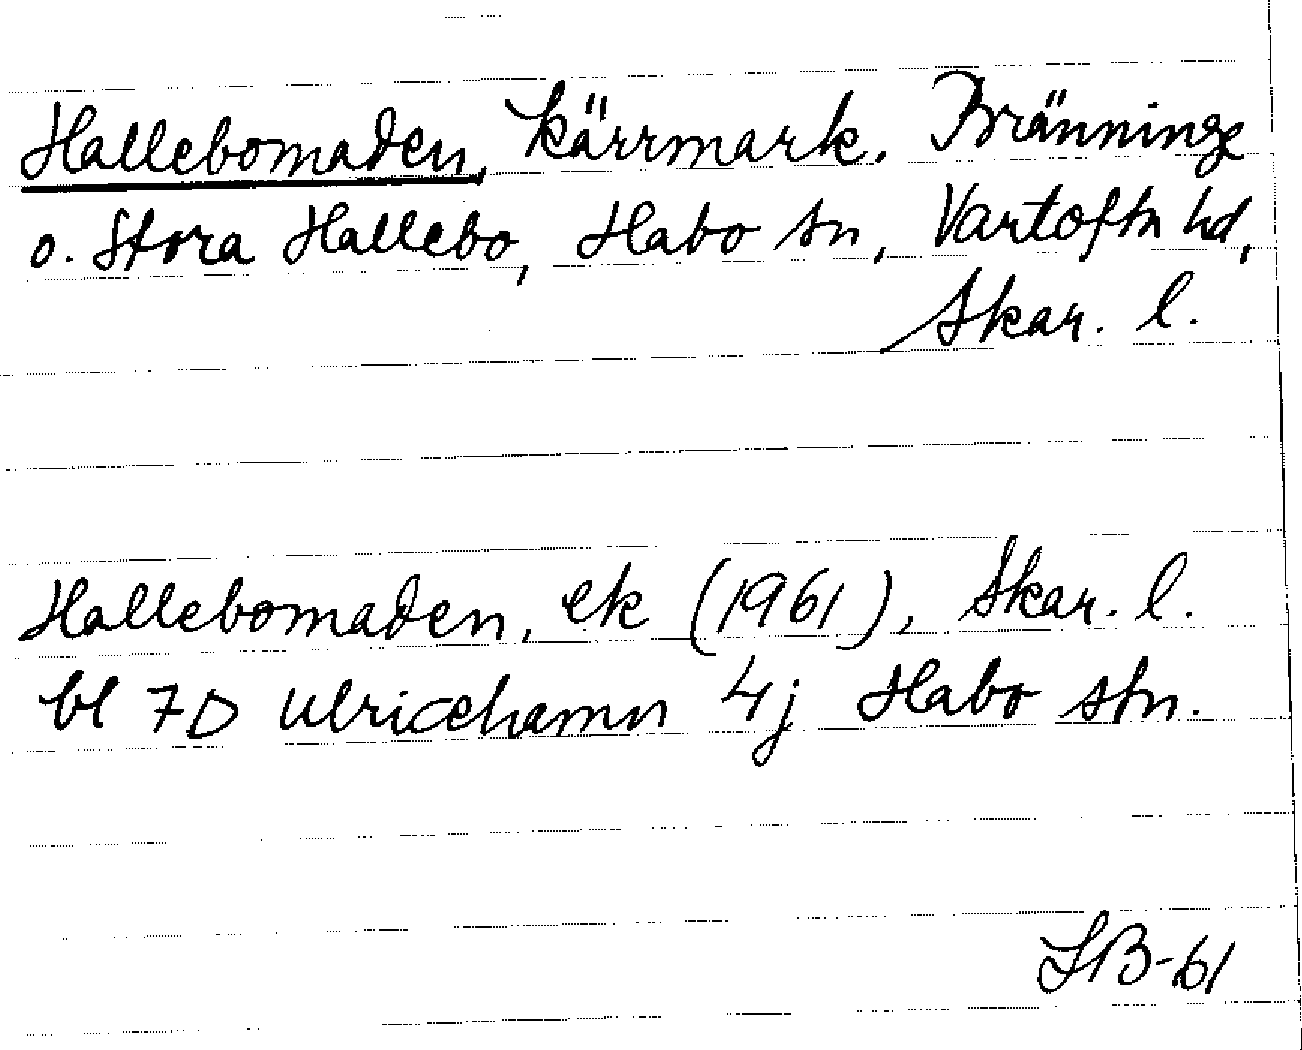 Hallebomaden, kärrmark. Bränninge
o. Stora Hallebo, Habo sn, Vartofta hd,
Skar. l.
Hallebomaden, ek (1961), Skar. l.
bl 7D Ulricehamn 4j Habo stn.
SB-61